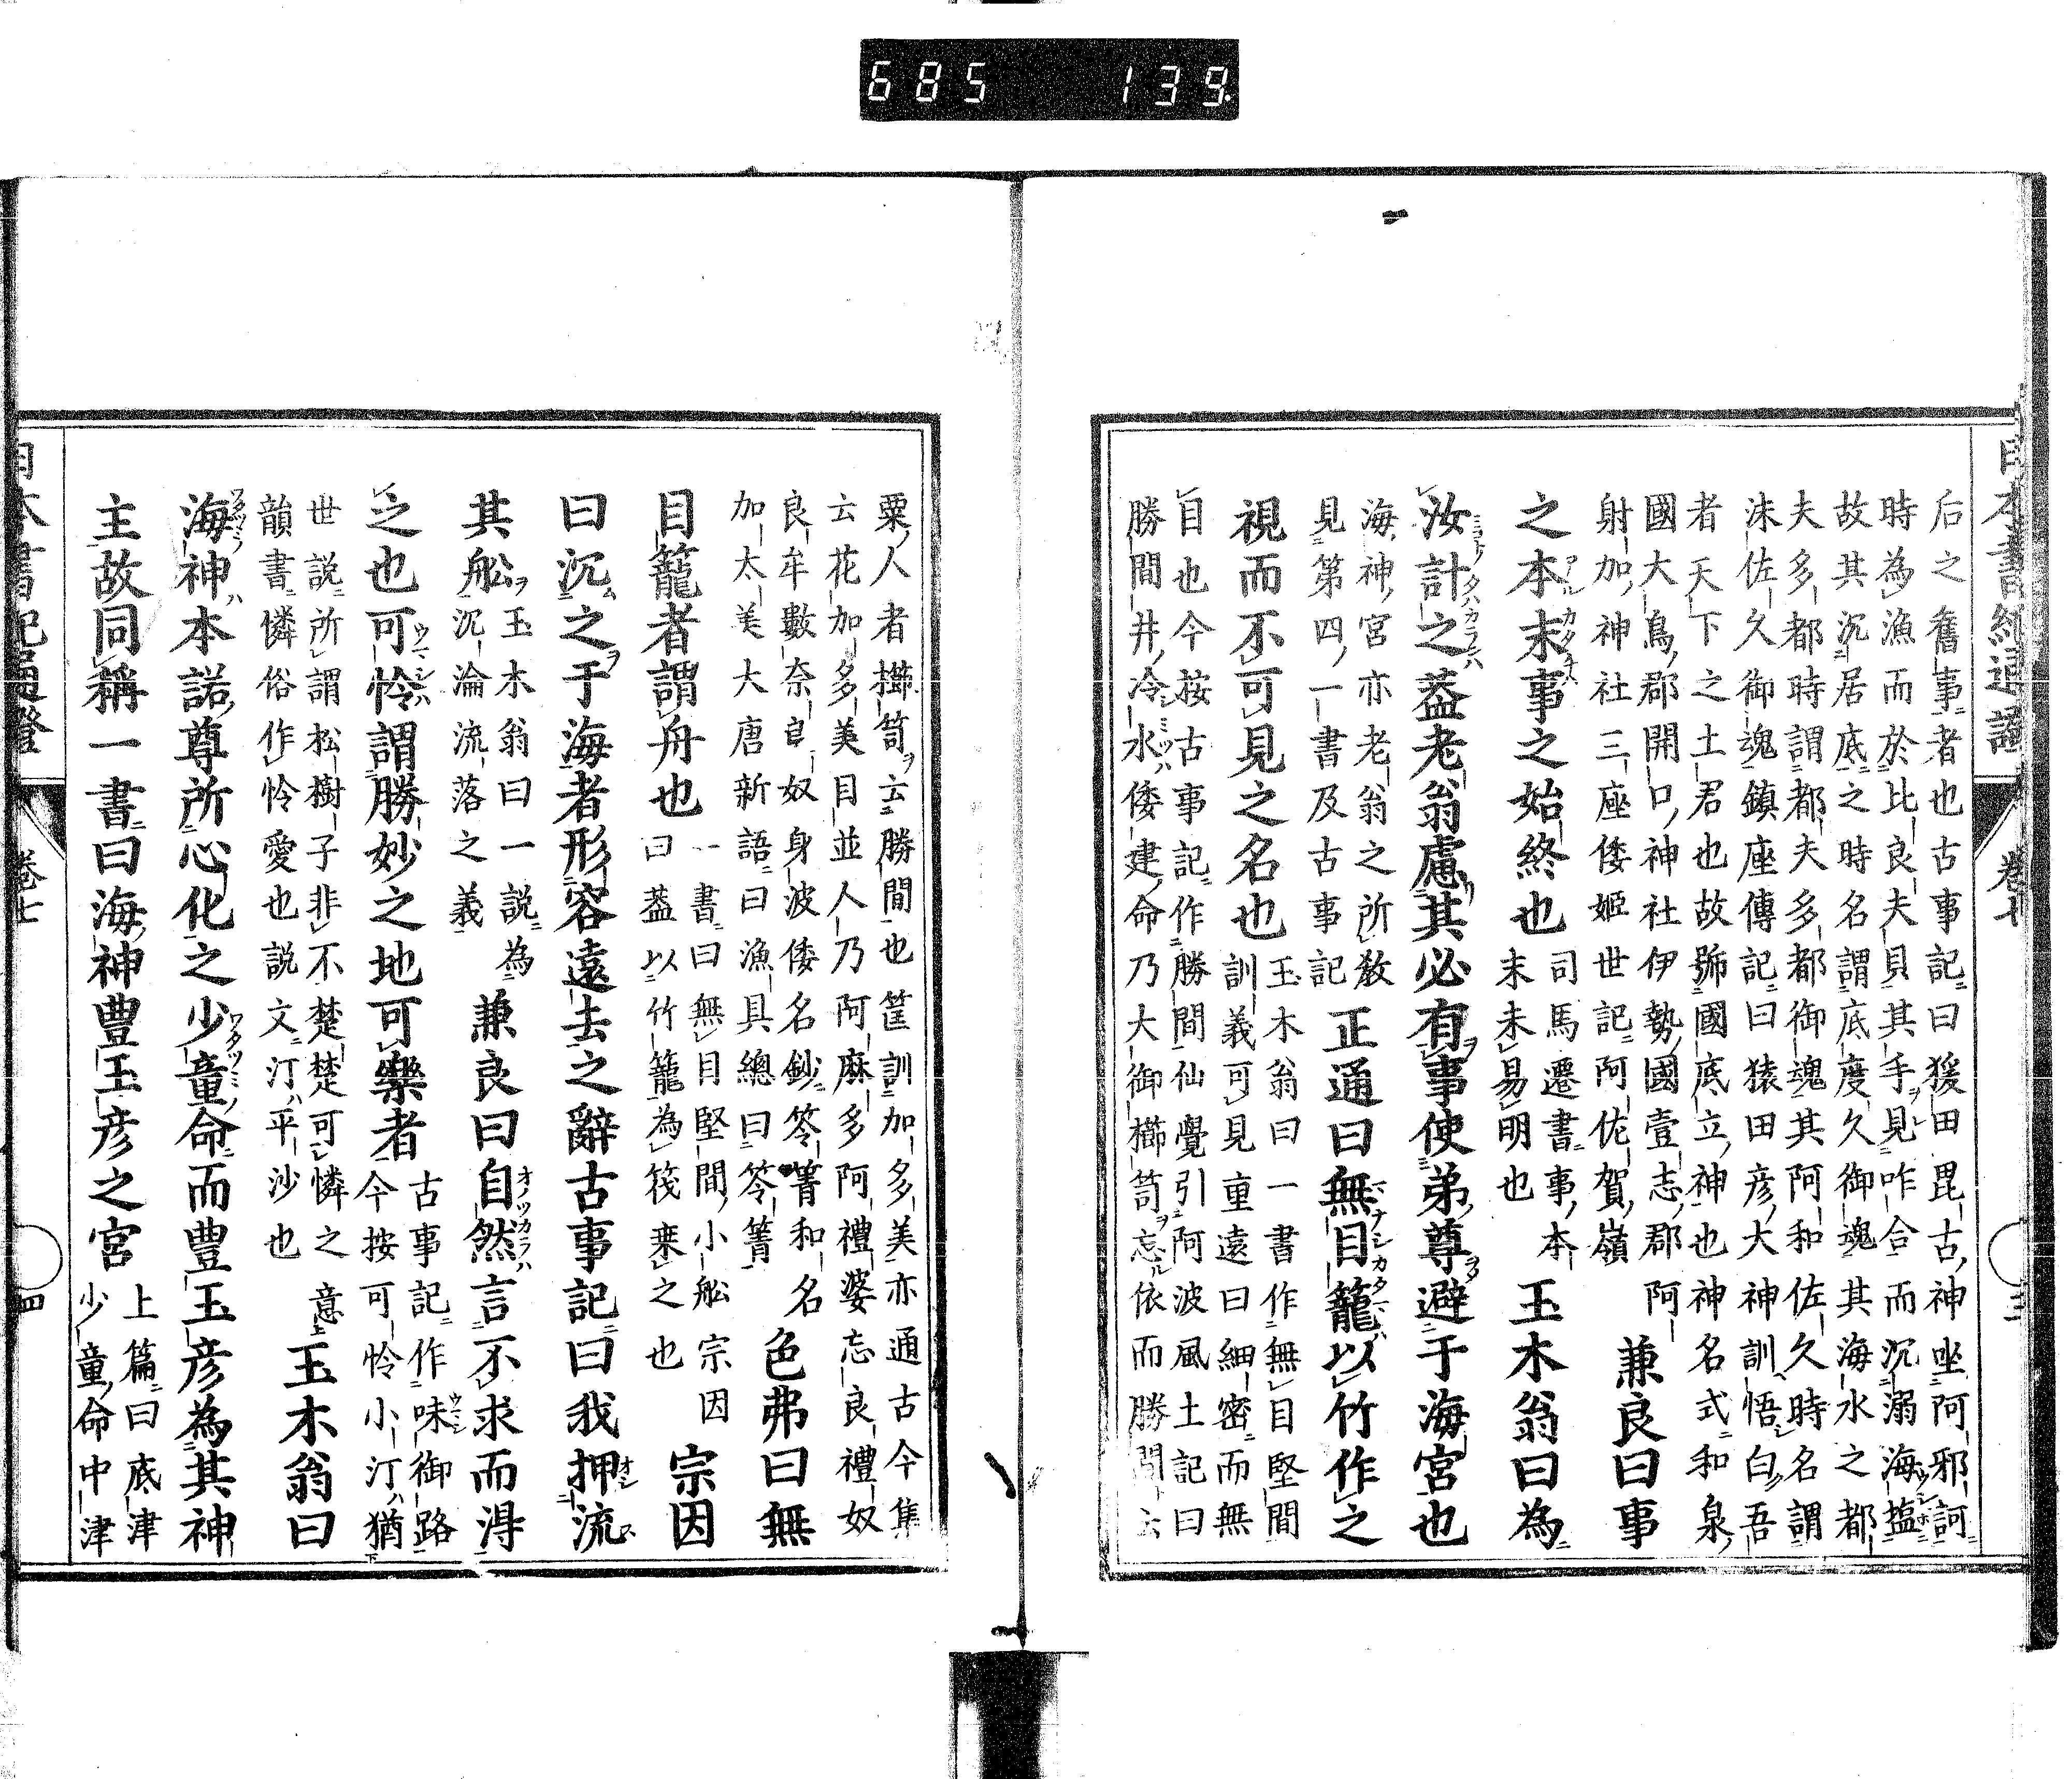 685 139
日本書紀通證 卷七 三
后之舊事者也古事記曰猨田毘古神坐阿邪訶
時為漁而於比良夫貝其手見咋合而沉溺海塩
故其沉居底之時名謂底度久御魂其海水之都
夫多都時謂都夫多都御魂其阿和佐久時名謂
沫佐久御魂鎮座傳記曰猿田彦大神訓悟白吾
者天下之土君也故號國底立神也神名式和泉
國大鳥郡開口神社伊勢國壹志郡阿
射加神社三座倭姬世記阿佐賀嶺
兼良曰事
之本末事之始終也
司馬遷書事本
末未易明也
玉木翁曰為
汝計之葢老翁慮其必有事使弟尊避于海宮也
海神宮亦老翁之所敎
見第四一書及古事記
正通曰無目籠以竹作之
視而不可見之名也
玉木翁曰一書作無目堅間
訓義可見重遠曰細密而無
目也今按古事記作勝間仙覺引阿波風土記曰
勝間井冷水倭建命乃大御櫛笥忘依而勝間云
粟人者櫛笥云勝間也筐訓加多美亦通古今集
云花加多美目並人乃阿麻多阿禮婆忘良禮奴
良牟數奈良奴身波倭名鈔笭箐和名
加太美大唐新語曰漁具總曰笭箐
色弗曰無
目籠者謂舟也
一書曰無目堅間小舩宗因
曰葢以竹籠為筏乗之也
宗因
曰沉之于海者形容遠去之辭古事記曰我押流
其舩
玉木翁曰一説為
沉淪流落之義
兼良曰自然言不求而淂
之也可怜謂勝妙之地可樂者
古事記作味御路
今按可怜小汀猶
世説所謂松樹子非不楚楚可憐之意
韻書憐俗作怜愛也説文汀平沙也
玉木翁曰
海神本諾尊所心化之少童命而豊玉彦為其神
主故同稱一書曰海神豊玉彦之宮
上篇曰底津
少童命中津
日本書紀通證 卷七 四